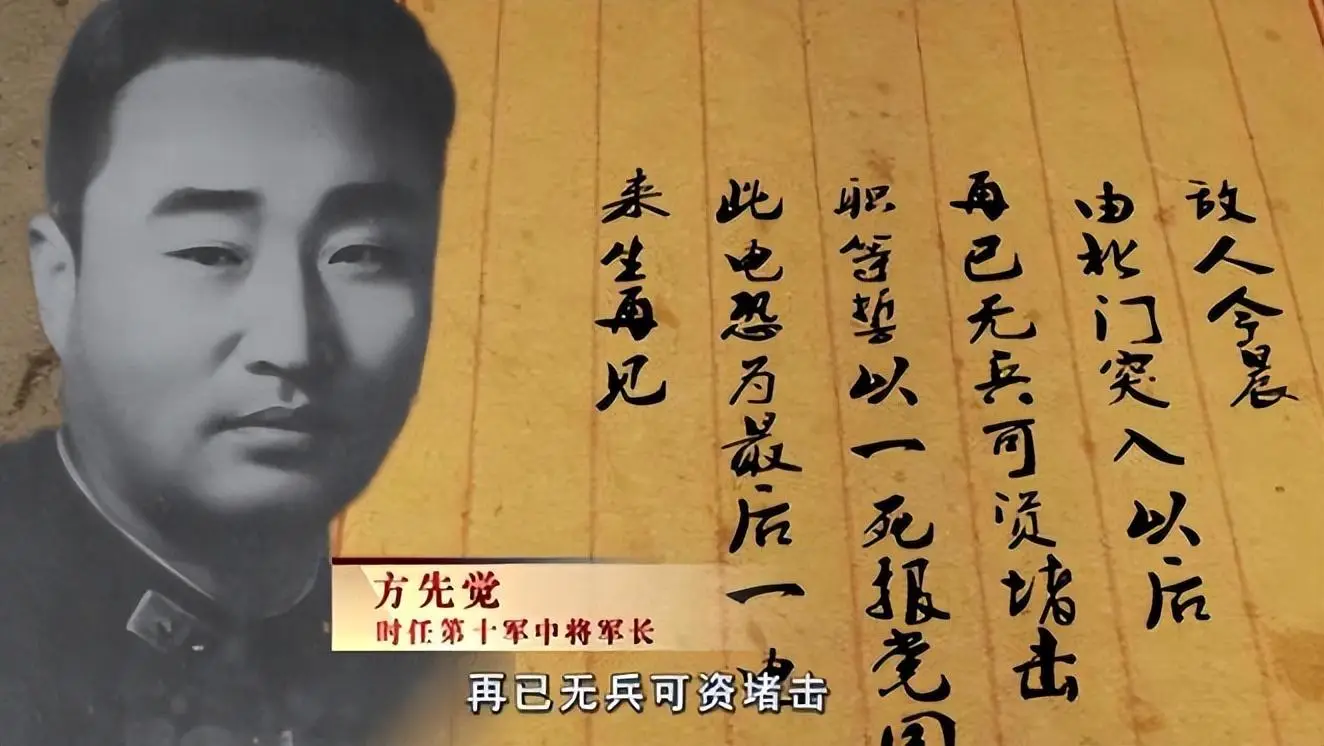 敌人今晨
由北门突入以后
再已无兵可资堵击
职等誓以一死报党国
此电恐为最后一电
来生再见
方先觉
时任第十军中将军长
再已无兵可资堵击